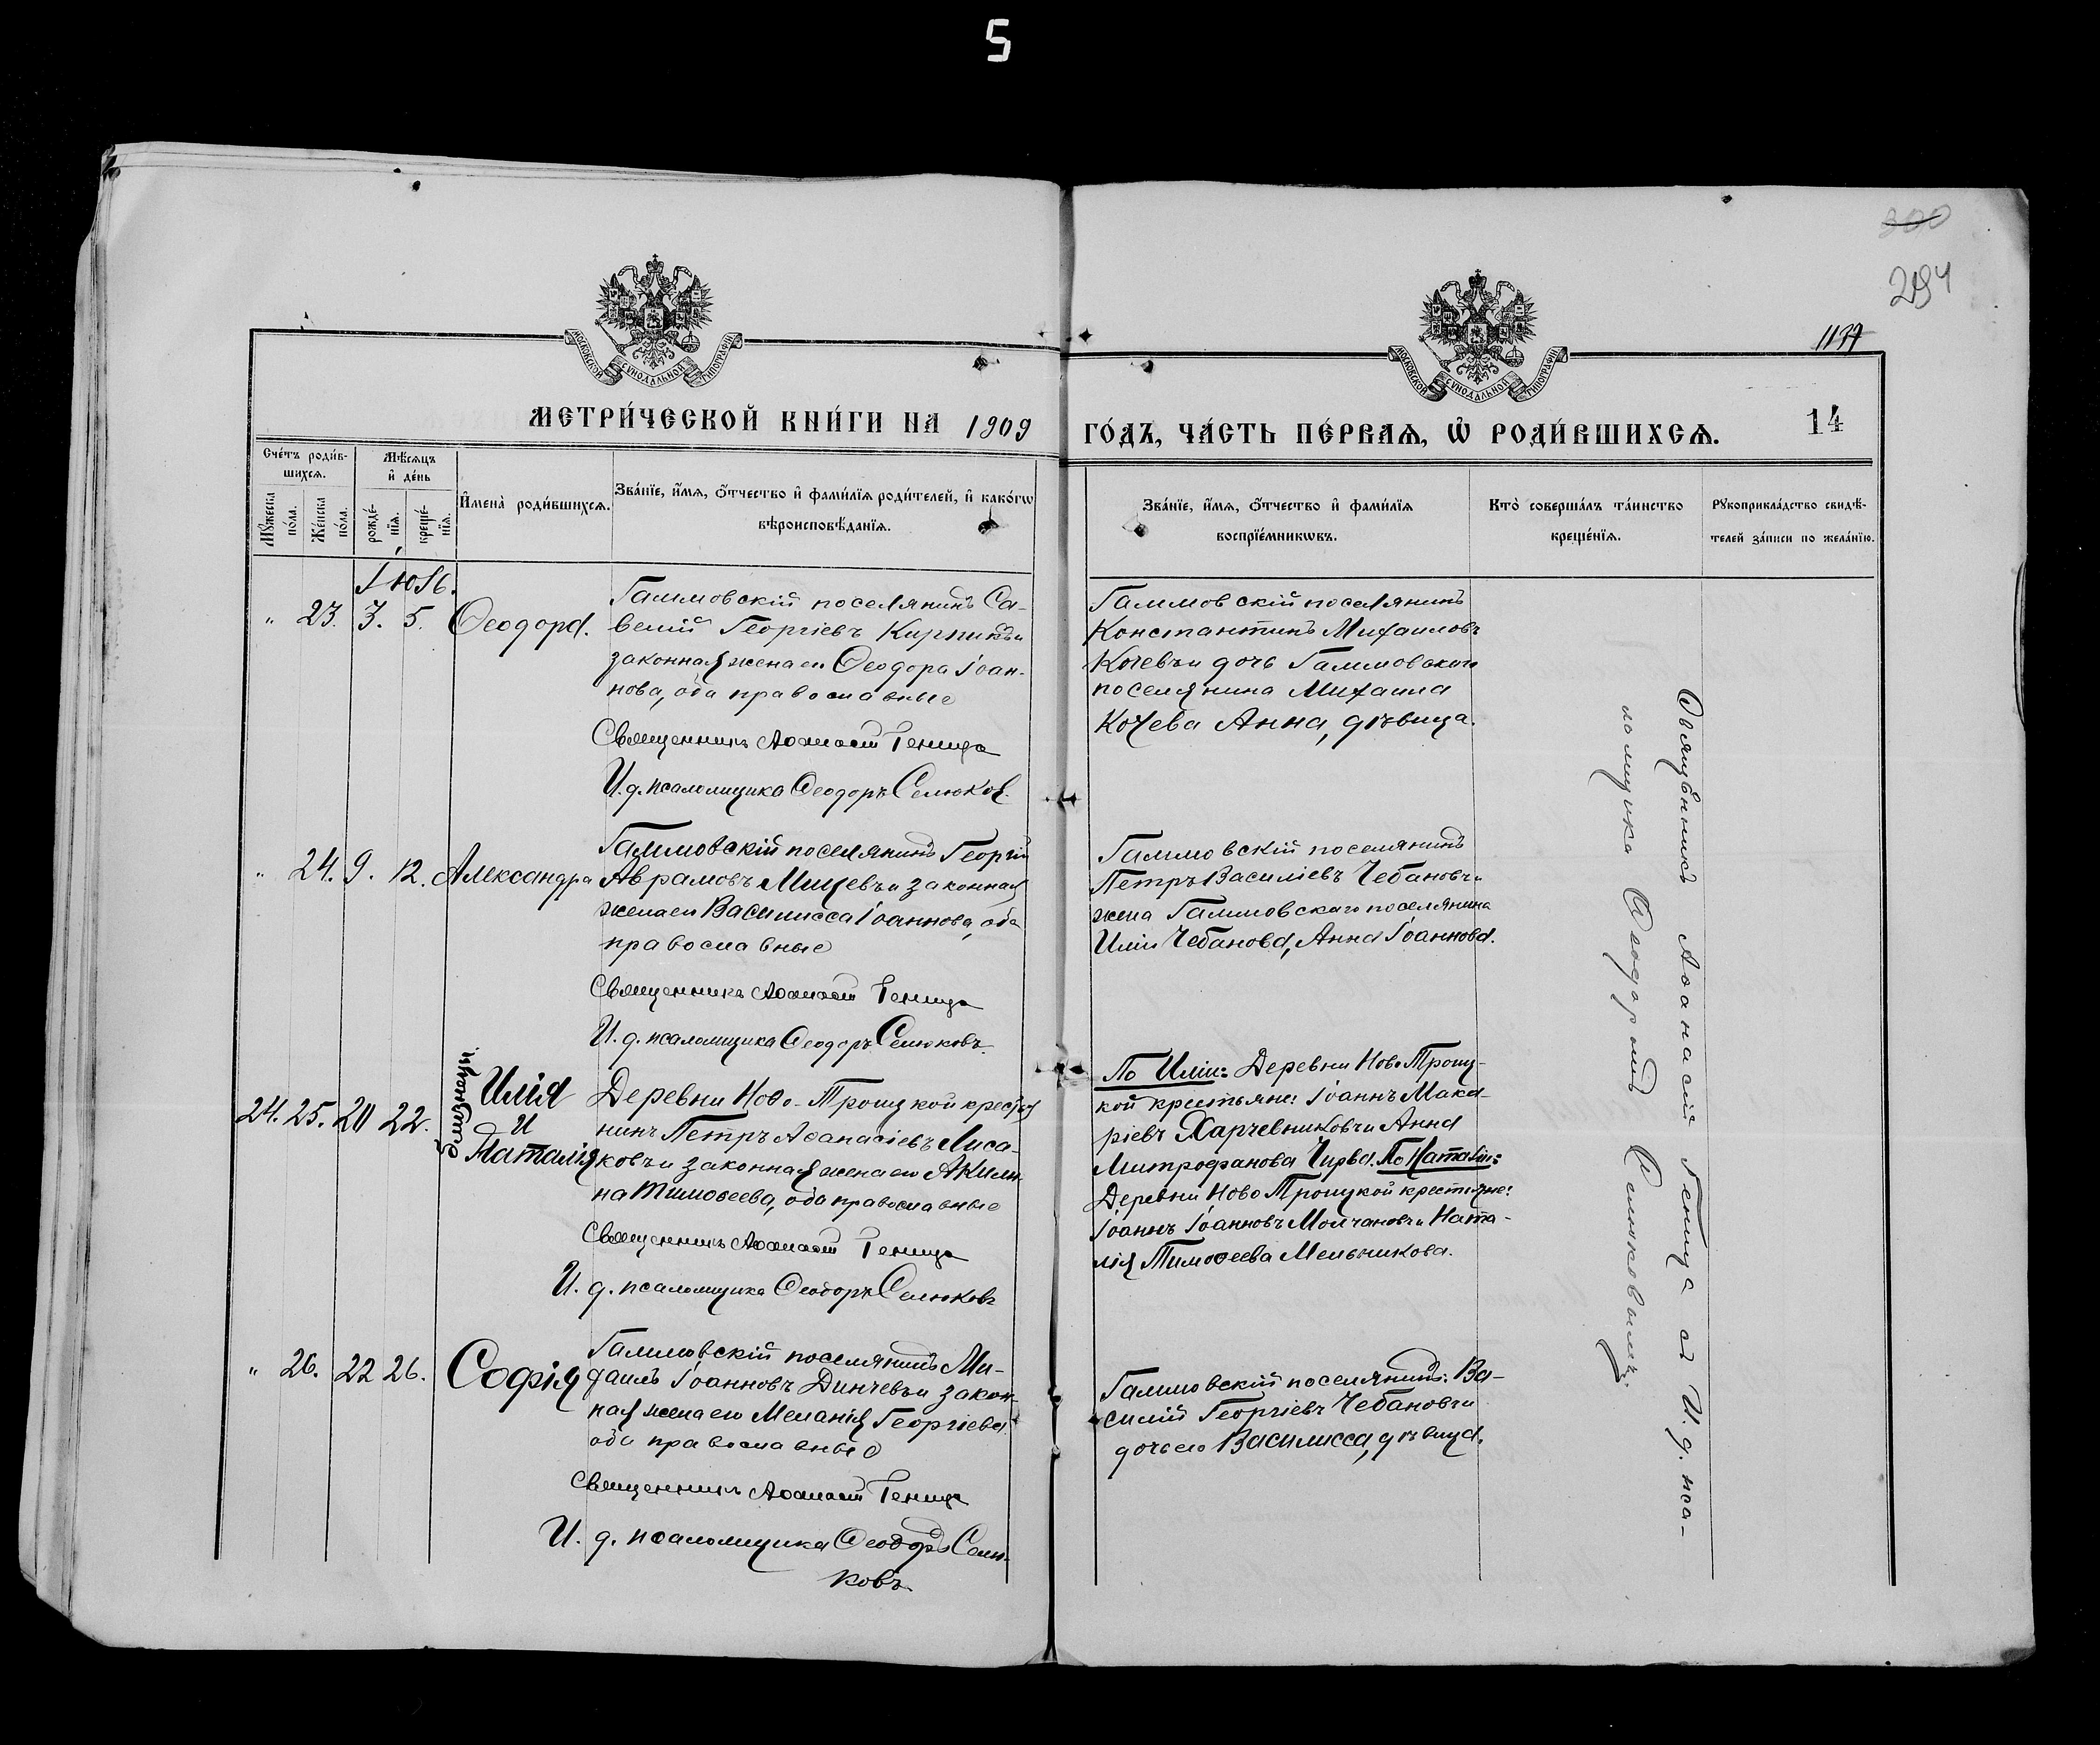 5
300
294
1137
МОСКОВСКОЙ СѴНОДАЛЬНОЙ ТИПОГРАФІИ
МОСКОВСКОЙ СѴНОДАЛЬНОЙ ТИПОГРАФІИ
МЕТРИ́ЧЕСКОЙ КНИ́ГИ НА 1909
ГО́ДЪ, ЧА́СТЬ ПЕ́РВАѦ, Ѡ҆ РОДИ́ВШИХСѦ.
14
Сче́тъ роди́в-
шихсѧ.
Мѣ́сѧцъ
и҆ де́нь
Мꙋ́жеска
по́ла.
Же́нска
по́ла.
рожде́-
нїѧ.
креще́-
нїѧ.
И҆мена̀ роди́вшихсѧ.
Зва́нїе, и҆́мѧ, ѻ҆́тчество и҆ фами́лїѧ роди́телей, и҆ како́гѡ
вѣроисповѣ́данїѧ.
Зва́нїе, и҆́мѧ, ѻ҆́тчество и҆ фами́лїѧ
воспрїе́мникѡвъ.
Кто̀ соверша́лъ та́инство
креще́нїѧ.
Рꙋкоприкла́дство свидѣ́-
телей за́писи по жела́нїю.
Іюль.
" 23. 3. 5. Ѳеодора.
Галицовскій поселянинъ Са-
велій Георгіевъ Кирпикъ и
законная жена его Ѳеодора Іоан-
нова, оба православные
Священникъ Аѳанасій Геница
И. д. псаломщика Ѳеодоръ Селюков.
Галицовскій поселянинъ
Константинъ Михаиловъ
Кочевъ и дочь Галицовскаго
поселянина Михаила
Кочева Анна, дѣвица.
" 24. 9. 12. Александра
Галицовскій поселянинъ Георгій
Аврамовъ Мицевъ и законная
жена его Василисса Іоаннова, оба
православные
Священникъ Аѳанасій Геница
И. д. псаломщика Ѳеодоръ Селюковъ.
Галицовскій поселянинъ
Петръ Василіевъ Чебановъ и
жена Галицовскаго поселянина
Иліи Чебанова, Анна Іоаннова.
24. 25. 20 22.
близнецы.
Илія
и
Наталія
Деревни Ново-Троицкой крестья
нинъ Петръ Аѳанасіевъ Лиса-
ковъ и законная жена его Акили-
на Тимоѳеева, оба православные
Священникъ Аѳанасій Геница
И. д. псаломщика Ѳеодоръ Селюковъ
По Иліи: Деревни Ново Троиц-
кой крестьяне: Іоаннъ Мака-
ріевъ Харчевниковъ и Анна
Митрофанова Чирва. По Наталіи:
Деревни Ново Троицкой крестьяне:
Іоаннъ Іоанновъ Молчановъ и Ната-
лія Тимоѳеева Мельникова.
" 26. 22 26. Софія
Галицовскій поселянинъ Ми-
хаилъ Іоанновъ Динчевъ и закон-
ная жена его Меланія Георгіева
оба православные
Священникъ Аѳанасій Геница
И. д. псаломщика Ѳеодоръ Селю-
ковъ
Галицовскій поселянинъ: Ва-
силій Георгіевъ Чебановъ и
дочь его Василисса, дѣвица.
Священникъ Аѳанасій Геница съ И. д. пса-
ломщика Ѳеодоромъ Селюковымъ.